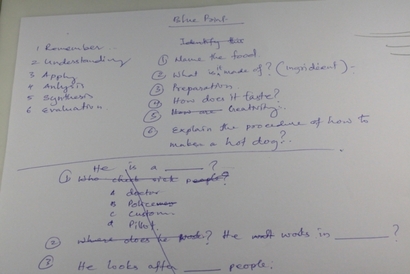 Blue Print
Identify the
1 Remember
2 Understanding
3 Apply
4 Anlysis
5 Synthesis
6 Evaluation
① Name the food
② What is it made of? (Ingridient)
③ Preparation
④ How does it taste?
⑤ Creativity
⑥ Explain the procedure of how to
make a hot dog?
He is a ____?
① Who check sick people?
A doctor
B Police
C Custom
d Pilot
② Where does he work? He works in ____?
③ He looks after ____ people.